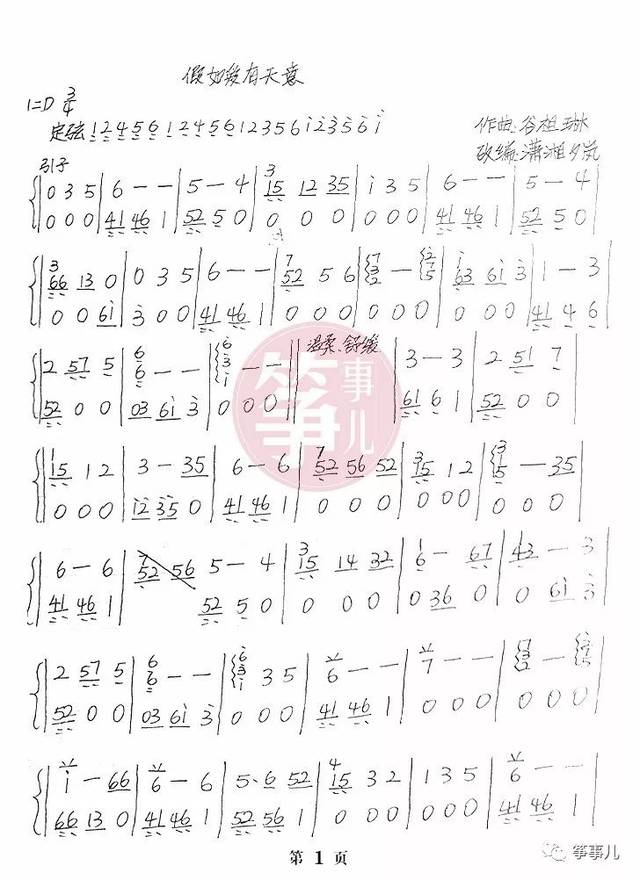 假如爱有天意
1=D 3/4
定弦 1 2 4 5 6 1 2 4 5 6 1 2 3 5 6 1 2 3 5 6 1
作曲:谷祖琳
改编:潇湘夕岚
引子
0 3 5 | 6 - - | 5 - 4 | 3 15 12 35 | 1 3 5 | 6 - - | 5 - 4
0 0 0 | 41 46 1 | 52 5 0 | 0 0 0 | 0 0 0 | 41 46 1 | 52 5 0
3 66 13 0 | 0 3 5 | 6 - - | 7 52 5 6 | 7 3 2 - 2 7 5 | 1 63 61 3 | 1 - 3
0 0 61 | 3 0 0 | 41 46 1 | 0 0 0 | 0 0 0 | 0 0 0 | 41 4 6
温柔、舒缓
2 57 5 | 6 6 - - | 6 3 1 - - | 3 - 3 | 2 51 7
52 0 0 | 03 61 3 | 0 0 0 | 61 6 1 | 52 0 0
筝事儿
15 1 2 | 3 - 35 | 6 - 6 | 7 52 56 52 | 3 15 12 | 3 1 5 - 35
0 0 0 | 12 35 0 | 41 46 1 | 0 0 0 | 0 0 0 | 0 0 0
6 - 6 | 52 56 5 - 4 | 3 15 14 32 | 1 6 - 67 | 43 - 3
41 46 1 | 52 5 0 | 0 0 0 | 0 36 0 | 0 61 3
2 57 5 | 6 6 - - | 6 3 1 3 5 | 6 - - | 7 - -
52 0 0 | 03 61 3 | 0 0 0 | 41 46 1 | 0 0 0 | 0 0 0
1 - 66 | 6 - 6 | 5·6 52 | 4 15 3 2 | 1 3 5 | 6 - -
66 13 0 | 41 46 1 | 52 5 0 | 0 0 0 | 0 0 0 | 41 46 1
第 1 页
筝事儿